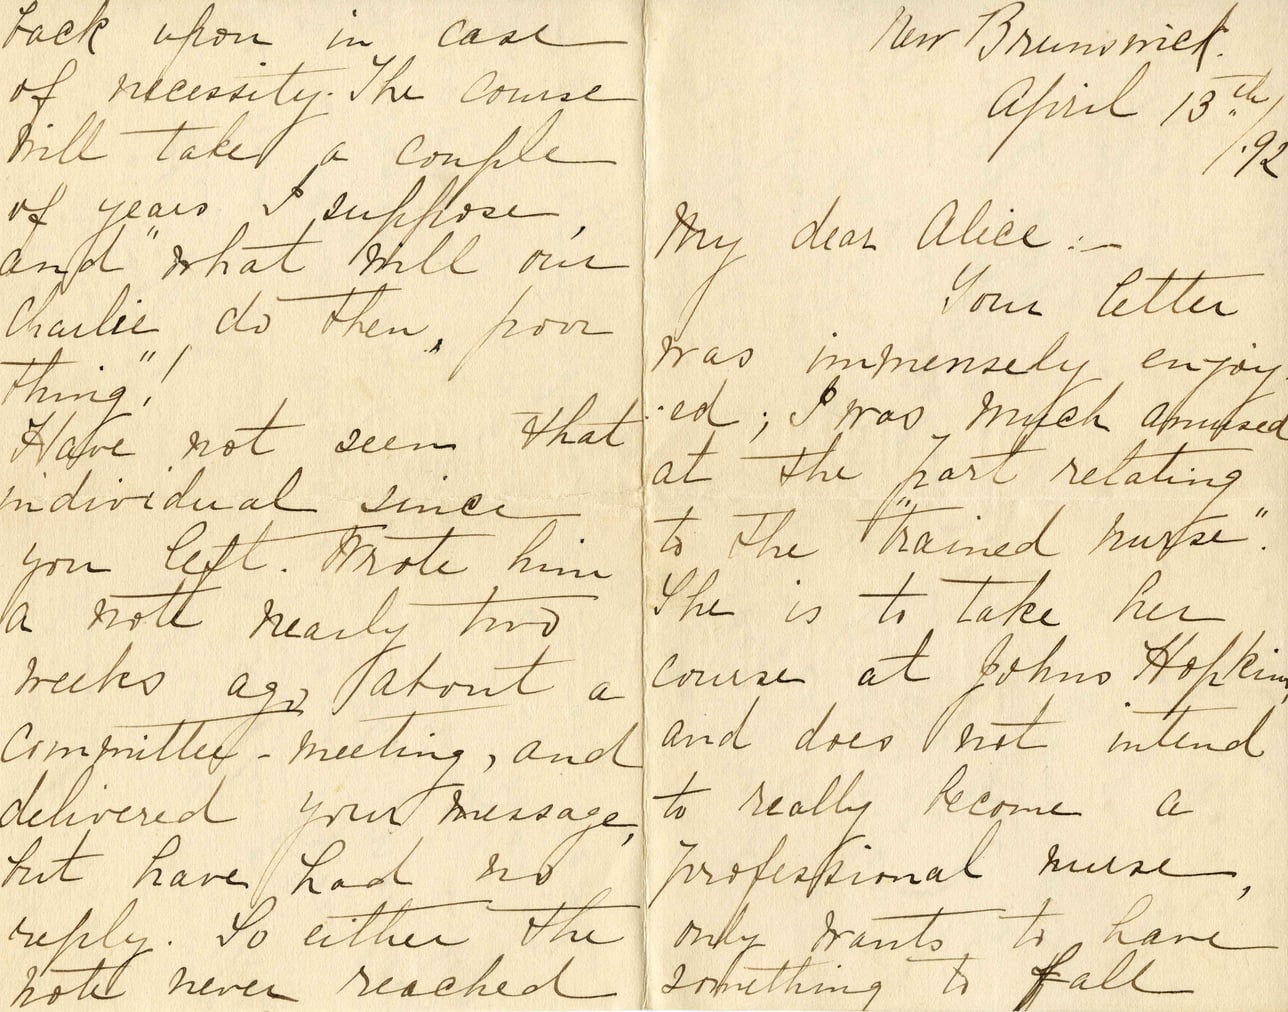 New Brunswick.
April 13th/
/.92
My dear Alice :-
Your letter
was immensely enjoy-
-ed ; I was much amused
at the part relating
to the "trained nurse".
She is to take her
course at Johns Hopkins,
and does not intend
to really become a
professional nurse,
only wants to have
something to fall
back upon in case
of necessity. The course
will take a couple
of years I suppose,
and "what will our
Charlie do then, poor
thing"!
Have not seen that
individual since
you left. Wrote him
a note nearly two
weeks ago about a
committee-meeting, and
delivered your message,
but have had no
reply. So either the
note never reached